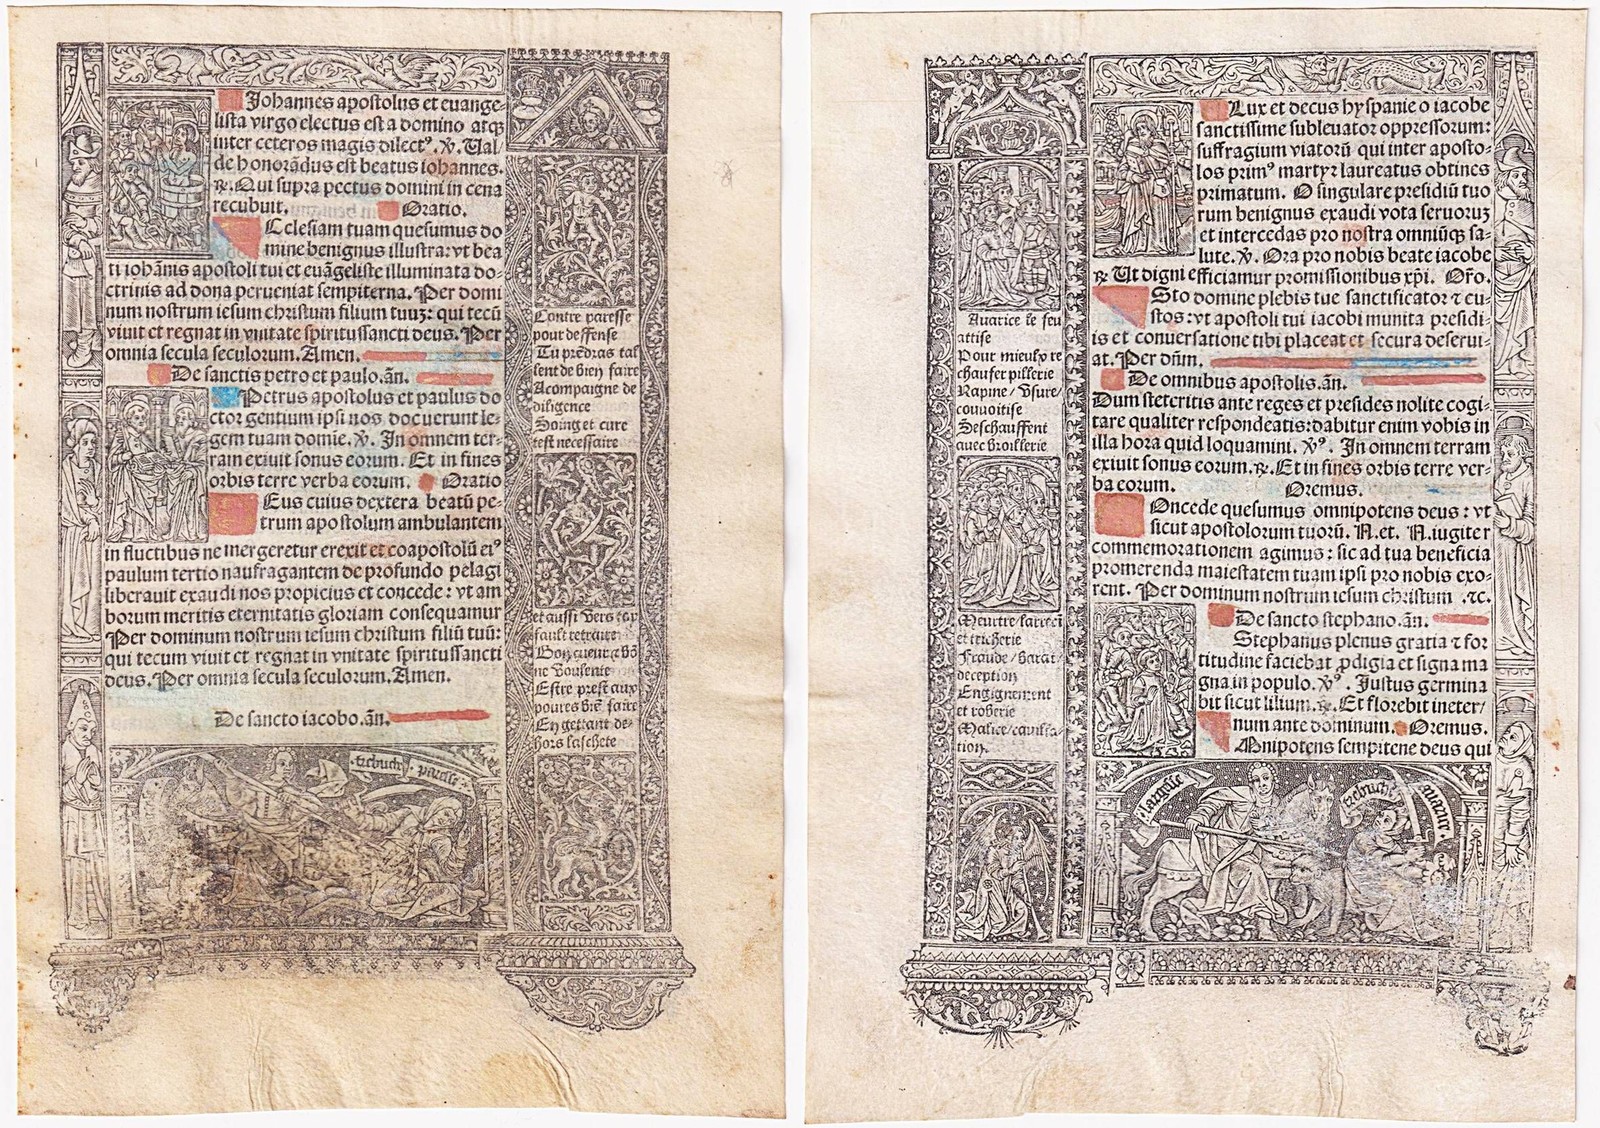 Johannes apostolus et euange-
lista virgo electus est a domino atq̃
inter ceteros magis dilectꝰ. ℣. Ual/
de honorãdus est beatus iohannes.
℟. Qui supra pectus domini in cena
recubuit. Oratio.
Cclesiam tuam quesumus do
mine benignus illustra: vt bea
ti iohãnis apostoli tui et euãgeliste illuminata do-
ctrinis ad dona perueniat sempiterna. Per domi
num nostrum iesum christum filium tuuʒ: qui tecũ
viuit et regnat in vnitate spiritussancti deus. Per
omnia secula seculorum. Amen.
De sanctis petro et paulo. añ.
Petrus apostolus et paulus do
ctor gentium ipsi nos docuerunt le-
gem tuam domie. ℣. In omnem ter-
ram exiuit sonus eorum. Et in fines
orbis terre verba eorum. Oratio
Eus cuius dextera beatũ pe-
trum apostolum ambulantem
in fluctibus ne mergeretur erexit et coapostolũ eiꝰ
paulum tertio naufragantem de profundo pelagi
liberauit exaudi nos propicius et concede: vt am
borum meritis eternitatis gloriam consequamur
Per dominum nostrum iesum christum filiũ tuũ:
qui tecum viuit et regnat in vnitate spiritussancti
deus. Per omnia secula seculorum. Amen.
De sancto iacobo. añ.
Contre paresse
pour deffense
Tu prẽdras tal
lent de bien faire
Acompaigne de
diligence
Soing et cure
test necessaire
et aussi vers
fault retraire
ne voulente
Estre prest aux
poures biẽ faire
En gettant de-
hors laschete
trebuche paresse
Lux et decus hyspanie o iacobe
sanctissime subleuator oppressorum:
suffragium viatorũ qui inter aposto-
los primꝰ martyr laureatus obtines
primatum. O singulare presidiũ tuo
rum benignus exaudi vota seruoruʒ
et intercedas pro nostra omniũq̃ sa-
lute. ℣. Ora pro nobis beate iacobe
℟. Ut digni efficiamur promissionibus xp̃i. Oro.
Sto domine plebis tue sanctificator ⁊ cu-
stos: vt apostoli tui iacobi munita presidi-
is et conuersatione tibi placeat et secura deserui-
at. Per dñm.
De omnibus apostolis. añ.
Dum steteritis ante reges et presides nolite cogi-
tare qualiter respondeatis: dabitur enim vobis in
illa hora quid loquamini. ℣ꝰ. In omnem terram
exiuit sonus eorum. ℟. Et in fines orbis terre ver-
ba eorum. Oremus.
Oncede quesumus omnipotens deus: vt
sicut apostolorum tuorũ. N. et. N. iugiter
commemorationem agimus: sic ad tua beneficia
promerenda maiestatem tuam ipsi pro nobis exo-
rent. Per dominum nostrum iesum christum .⁊c.
De sancto stephano. añ.
Stephanus plenus gratia ⁊ for
titudine faciebat ꝓdigia et signa ma
gna in populo. ℣ꝰ. Justus germina
bit sicut lilium. ℟. Et florebit ineter/
num ante dominum. Oremus.
Mnipotens sempitene deus qui
Auarice le feu
attise
Pour mieulx re
chaufer pillerie
Rapine / vsure/
couuoitise
Seschauffent
auec broillerie
Meurtre larreci
et tricherie
Fraude / barat/
deception
Engignement
et roberie
Malice/cauilla-
tion.
largesse trebuche auarice